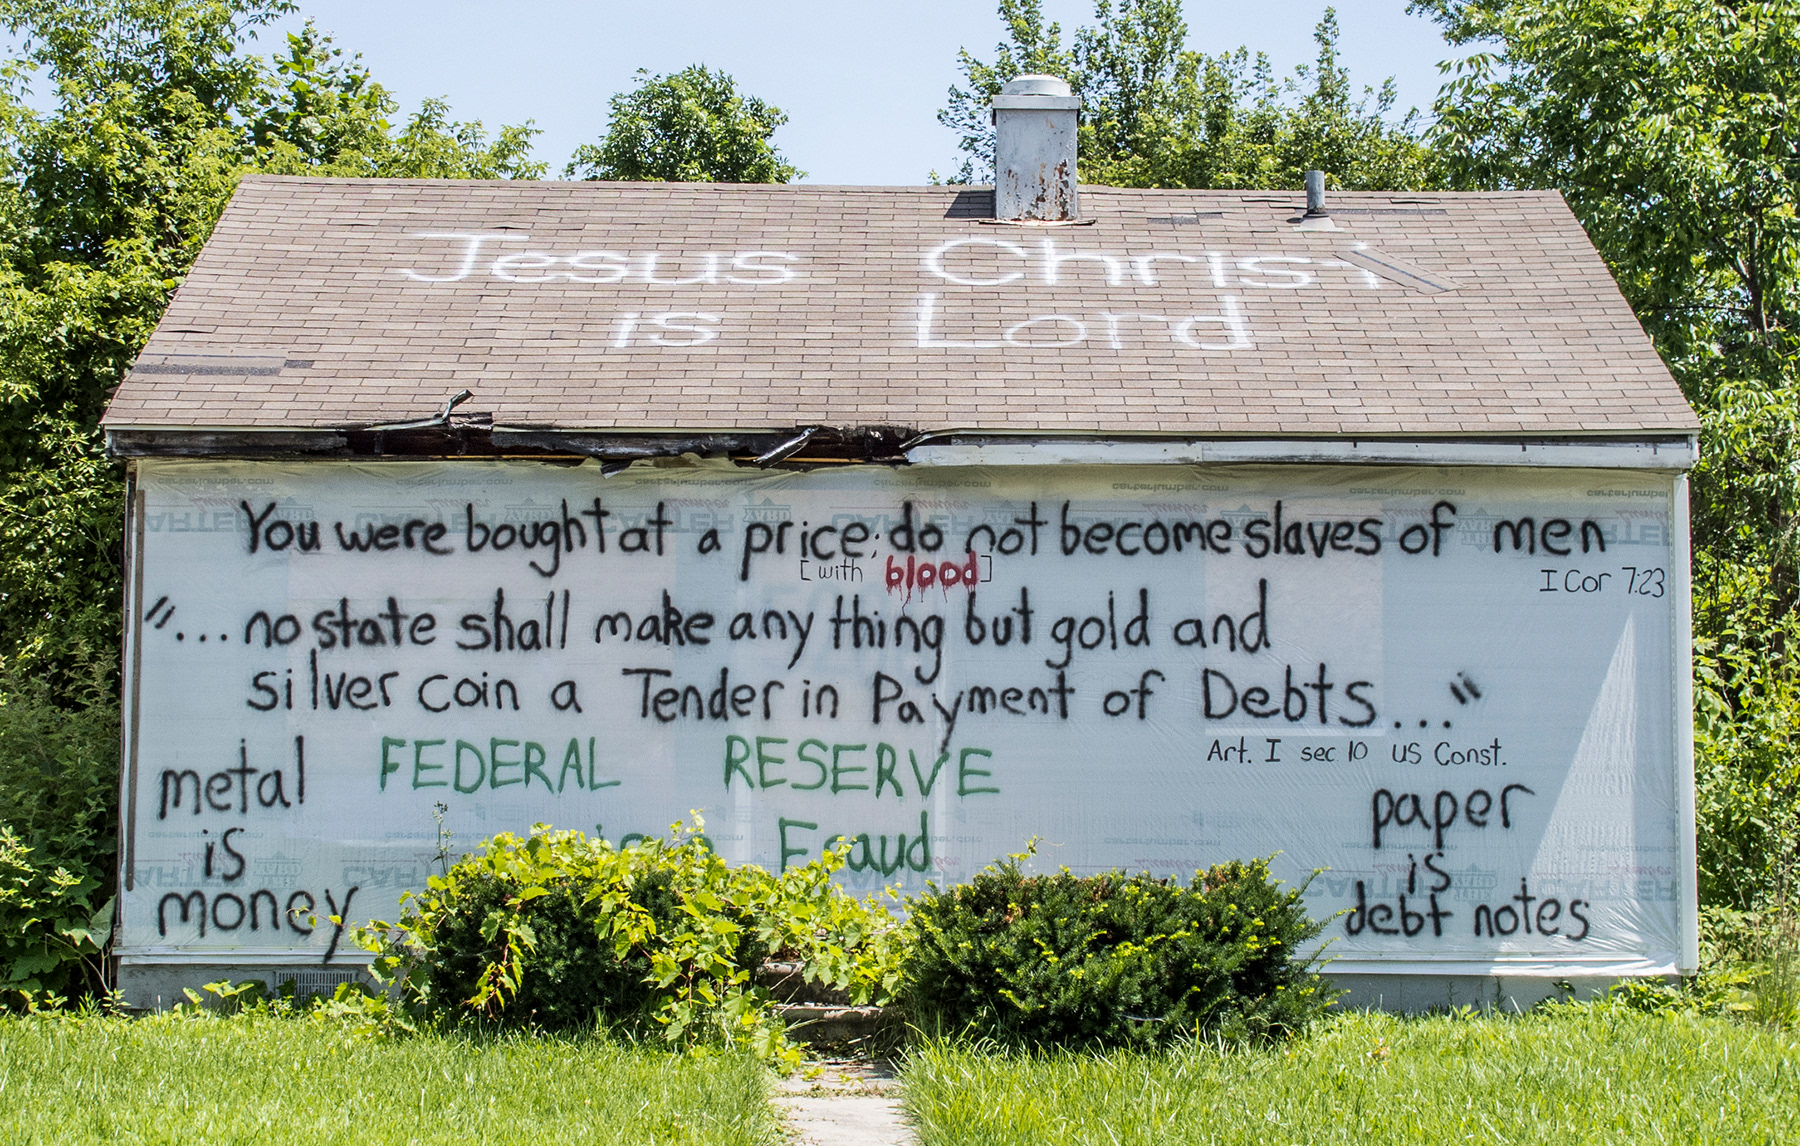 Jesus Christ
is Lord
You were bought at a price; do not become slaves of men
[with blood]
I Cor 7:23
"... no state shall make any thing but gold and
silver coin a Tender in Payment of Debts..."
Art. I sec 10 US Const.
FEDERAL RESERVE
Fraud
metal
is
money
paper
is
debt notes